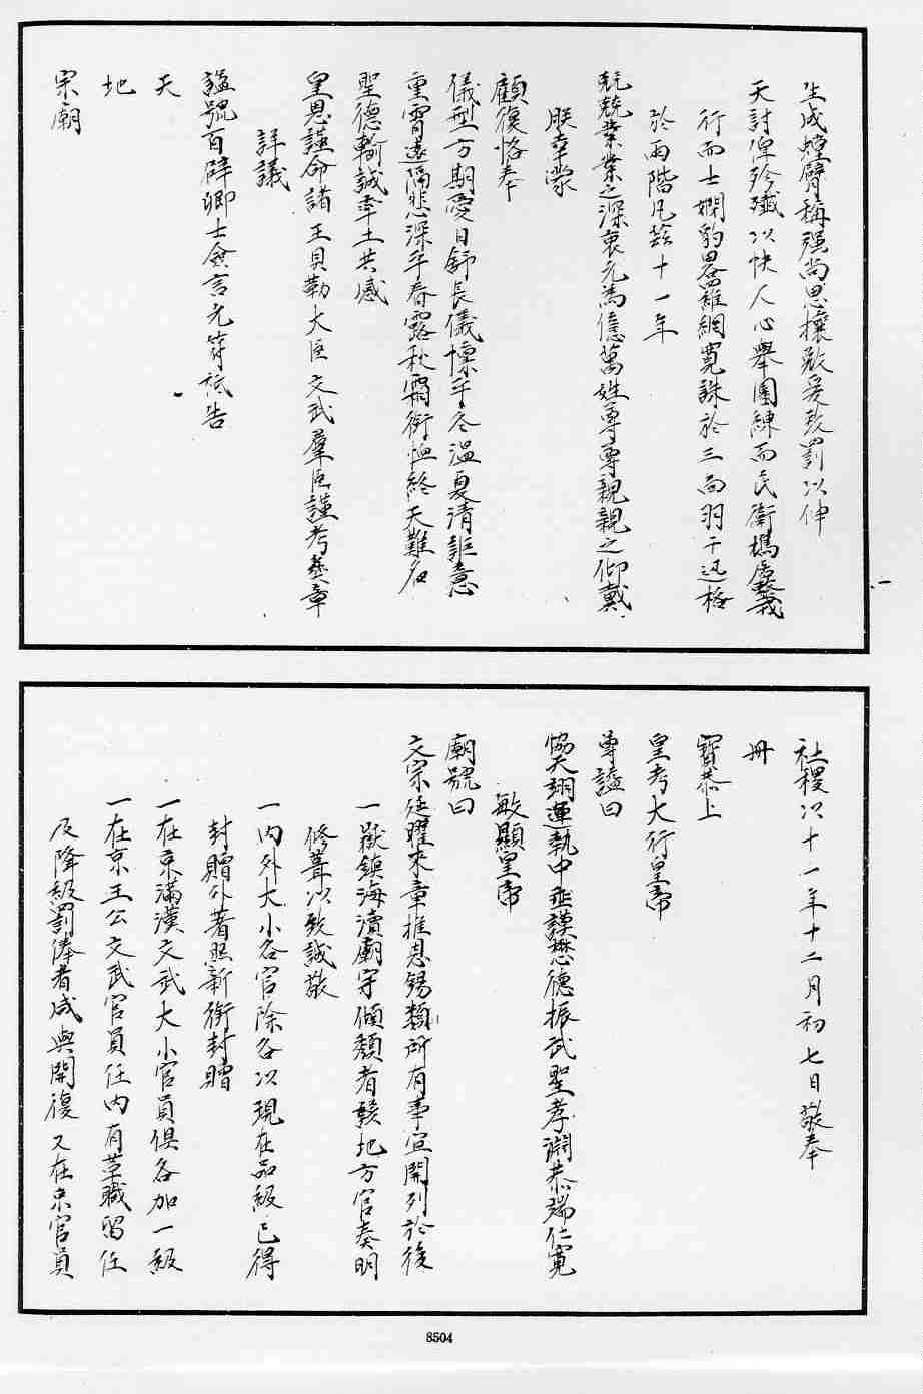 生成螳臂稱强尚思攘敚爰致罰以伸
天討俾殄殲以快人心舉團練而民衛塢虞義
行而士嫻豹畧雖網寬誅於三面羽干迅格
於兩階凡茲十一年
兢兢業業之深衷允為億萬姓尊尊親親之仰戴
朕幸蒙
顧復恪奉
儀型方期愛日舒長儀懍乎冬溫夏凊詎意
重霄遠隔悲深乎春露秋霜銜恤終天難名
聖德輸誠率土共感
皇恩謹命諸王貝勒大臣文武羣臣謹考彝章
詳議
諡號百辟卿士僉言允符祗告
天
地
宗廟
社稷以十一年十二月初七日敬奉
冊
寶恭上
皇考大行皇帝
尊諡曰
協天翊運執中垂謨懋德振武聖孝淵恭端仁寬
敏顯皇帝
廟號曰
文宗廷曜來章推恩錫類所有事宜開列於後
一嶽鎮海瀆廟宇傾頹者該地方官奏明
修葺以致誠敬
一內外大小各官除各以現在品級已得
封贈外著照新銜封贈
一在京滿漢文武大小官員俱各加一級
一在京王公文武官員任內有革職留任
及降級罰俸者咸與開復又在京官員
8504